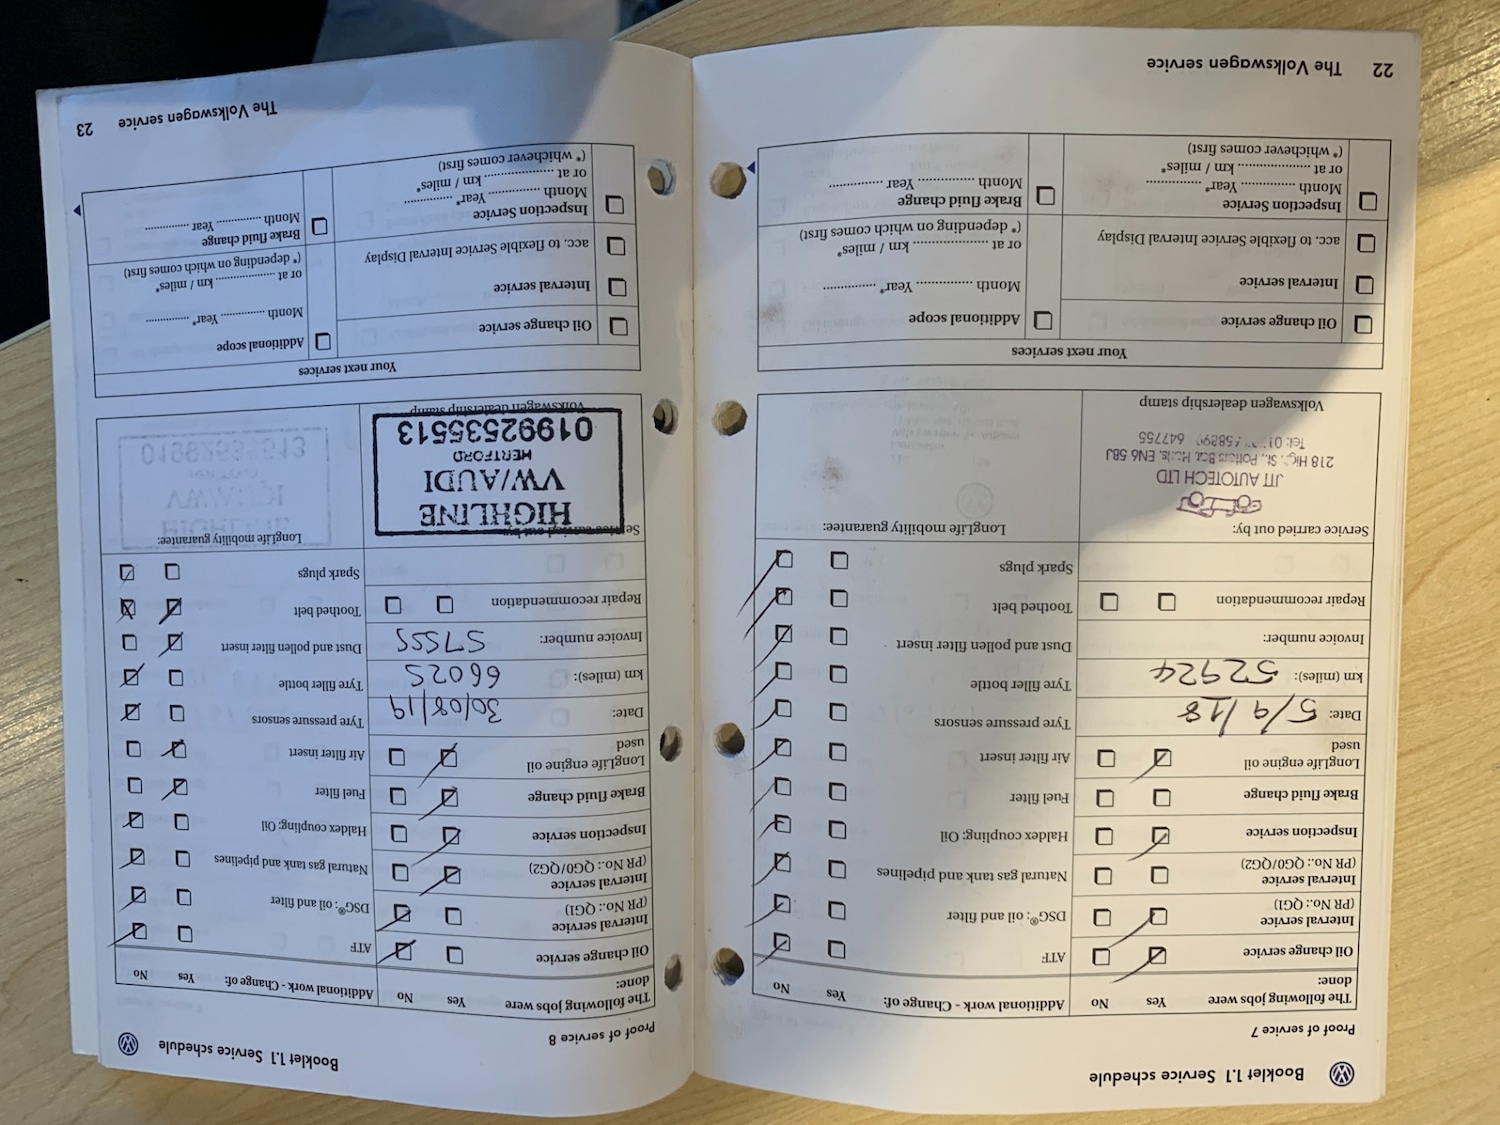 Booklet 1.1 Service schedule
Proof of service 7
The following jobs were done:
Yes
No
Additional work - Change of:
Yes
No
Oil change service
ATF
Interval service
(PR No.: QG1)
DSG®; oil and filter
Interval service
(PR No.: QG0/QG2)
Natural gas tank and pipelines
Inspection service
Haldex coupling; Oil
Brake fluid change
Fuel filter
LongLife engine oil
used
Air filter insert
Date: 5/9/18
Tyre pressure sensors
km (miles): 52924
Tyre filler bottle
Invoice number:
Dust and pollen filter insert
Repair recommendation
Toothed belt
Spark plugs
Service carried out by:
LongLife mobility guarantee:
JIT AUTOTECH LTD
218 High St., Potters Bar, Herts. EN6 5BJ
Tel: 647755
Volkswagen dealership stamp
Your next services
Oil change service
Interval service
acc. to flexible Service Interval Display
Inspection Service
Month ............... Year* ...............
or at .................... km / miles*
(* whichever comes first)
Additional scope
Month ............... Year* ...............
or at .................... km / miles*
(* depending on which comes first)
Brake fluid change
Month ............... Year ...............
22 The Volkswagen service
Booklet 1.1 Service schedule
Proof of service 8
The following jobs were
done:
Yes
No
Additional work - Change of:
Yes
No
Oil change service
ATF
Interval service
(PR No.: QG1)
DSG®; oil and filter
Interval service
(PR No.: QG0/QG2)
Natural gas tank and pipelines
Inspection service
Haldex coupling; Oil
Brake fluid change
Fuel filter
LongLife engine oil
used
Air filter insert
Date: 30/08/19
Tyre pressure sensors
km (miles): 66025
Tyre filler bottle
Invoice number: 57555
Dust and pollen filter insert
Repair recommendation
Toothed belt
Spark plugs
Service carried out by:
LongLife mobility guarantee:
HIGHLINE
VW/AUDI
HERTFORD
01992535513
Volkswagen dealership stamp
Your next services
Oil change service
Interval service
acc. to flexible Service Interval Display
Inspection Service
Month ............... Year* ...............
or at .................... km / miles*
(* whichever comes first)
Additional scope
Month ............... Year* ...............
or at .................... km / miles*
(* depending on which comes first)
Brake fluid change
Month ............... Year ...............
The Volkswagen service 23